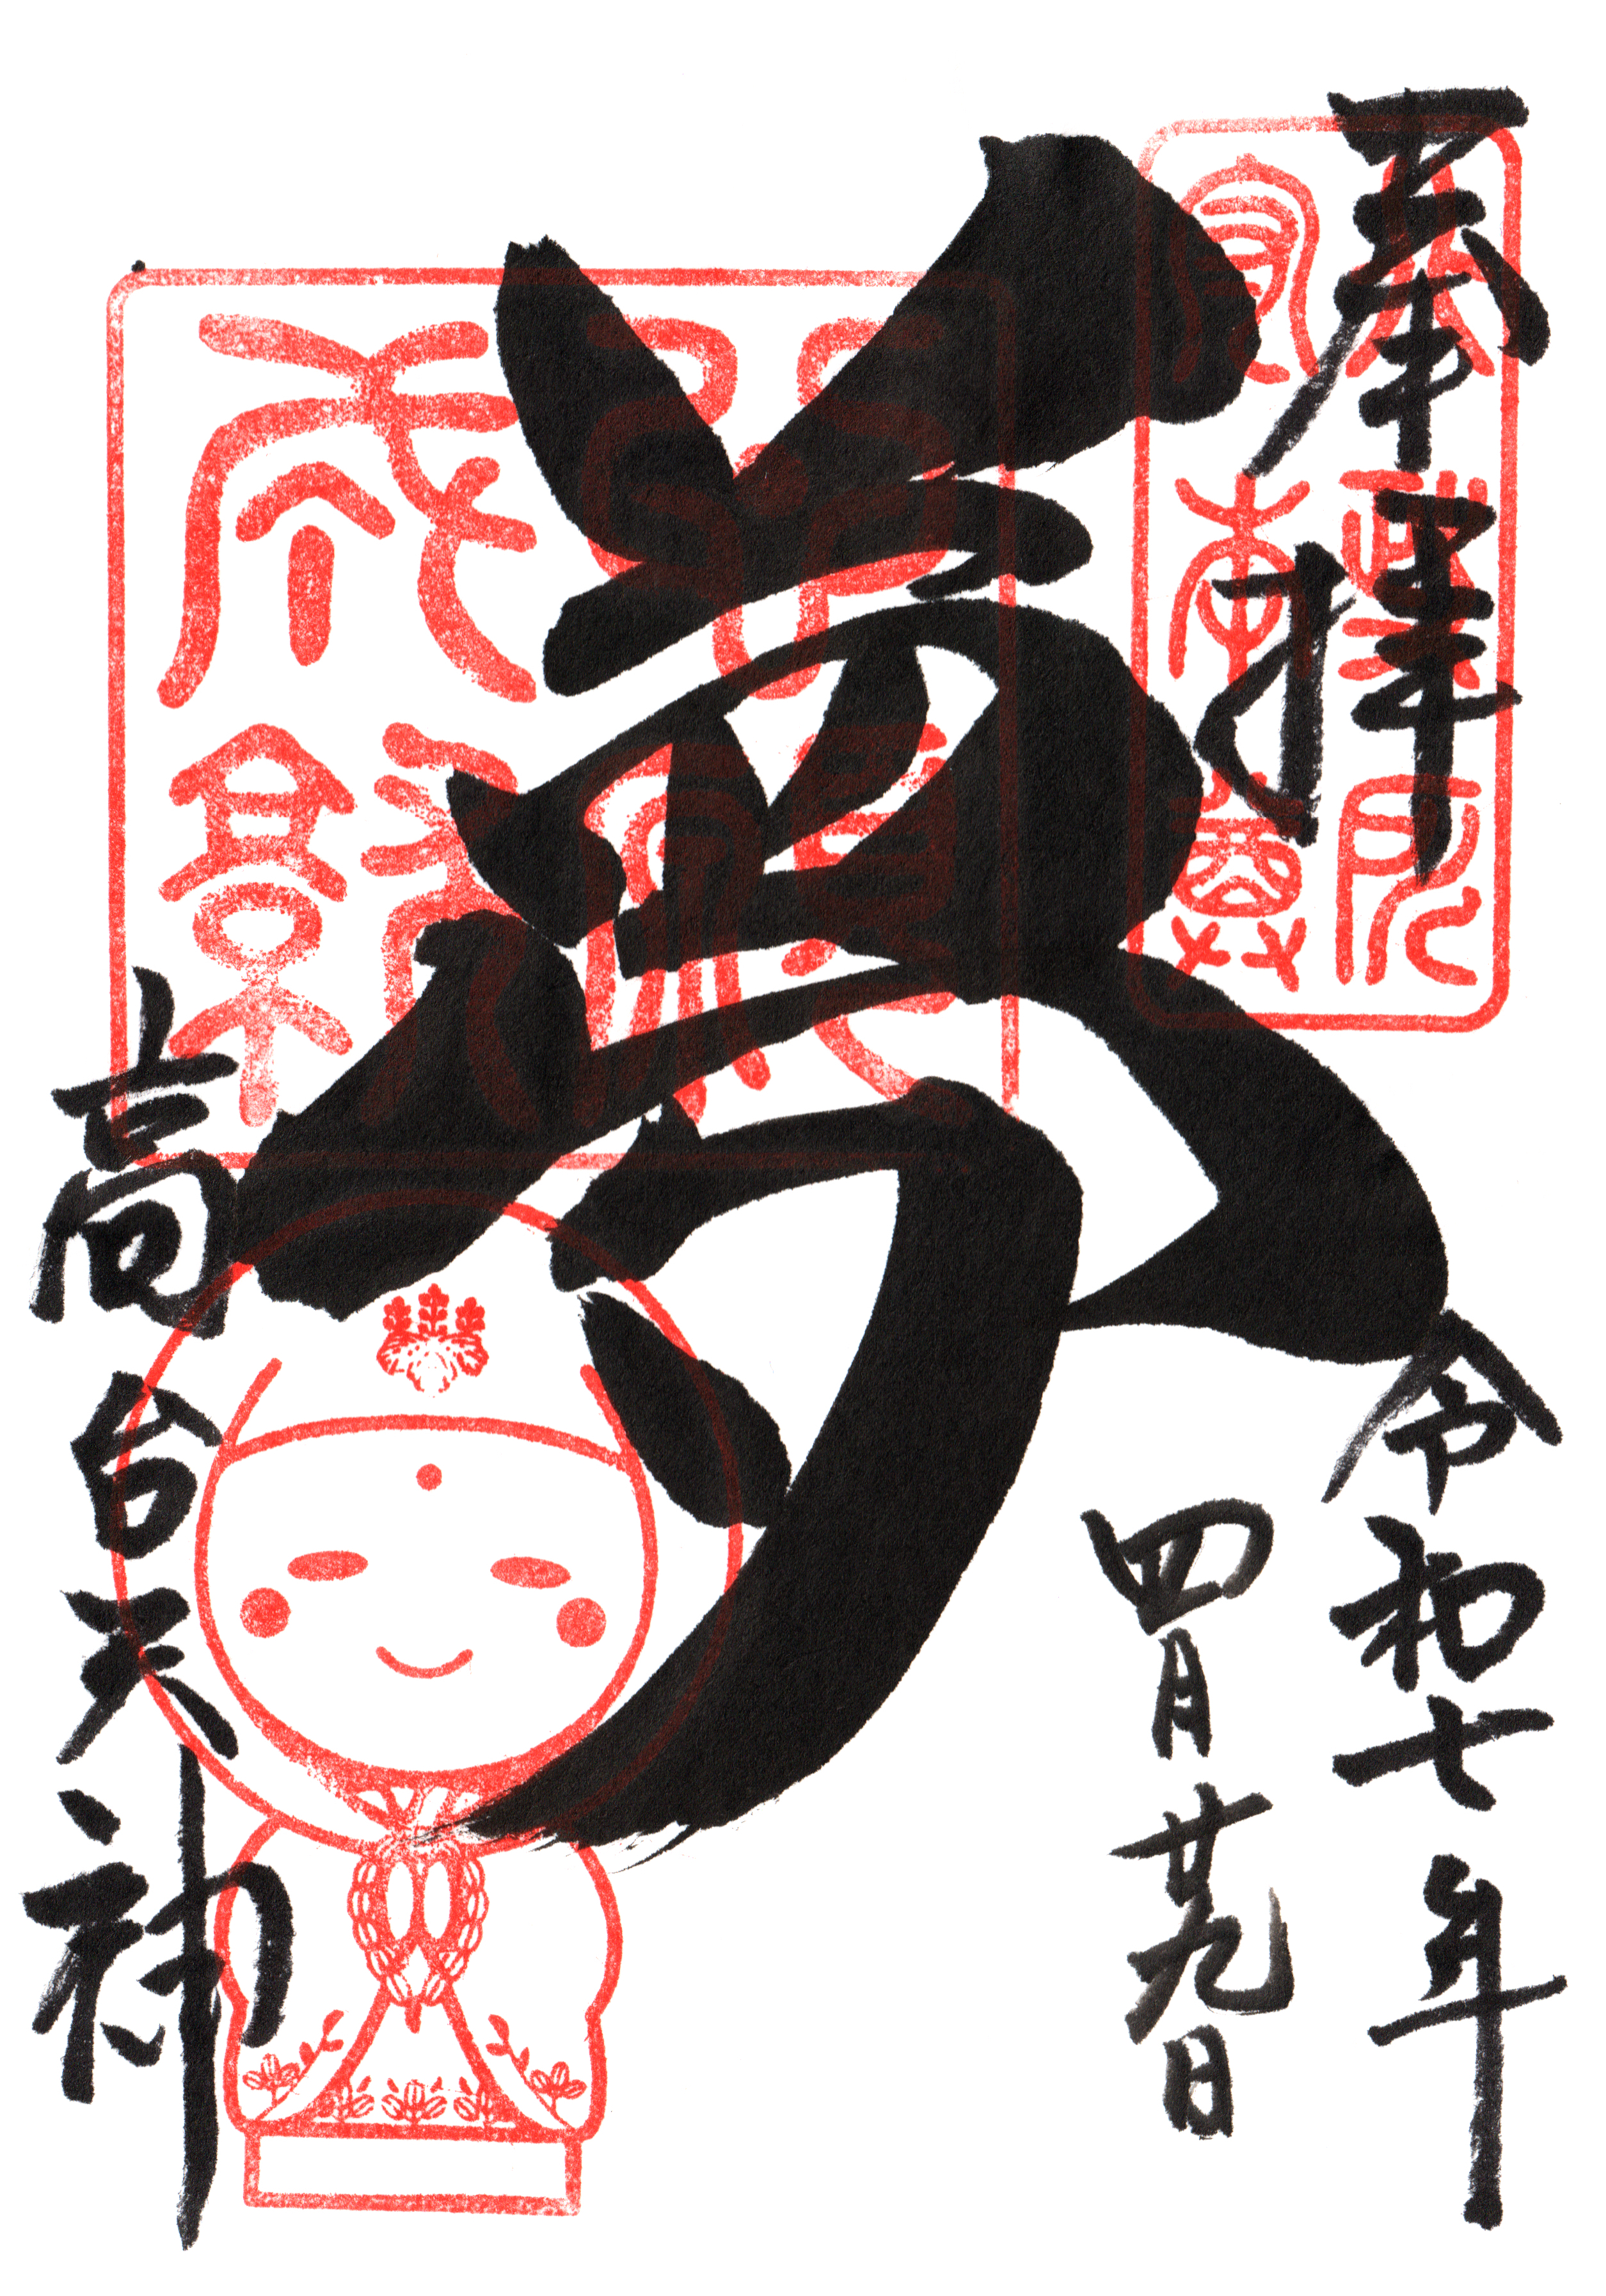 奉拝
令和七年
四月廿九日
夢
高台天神